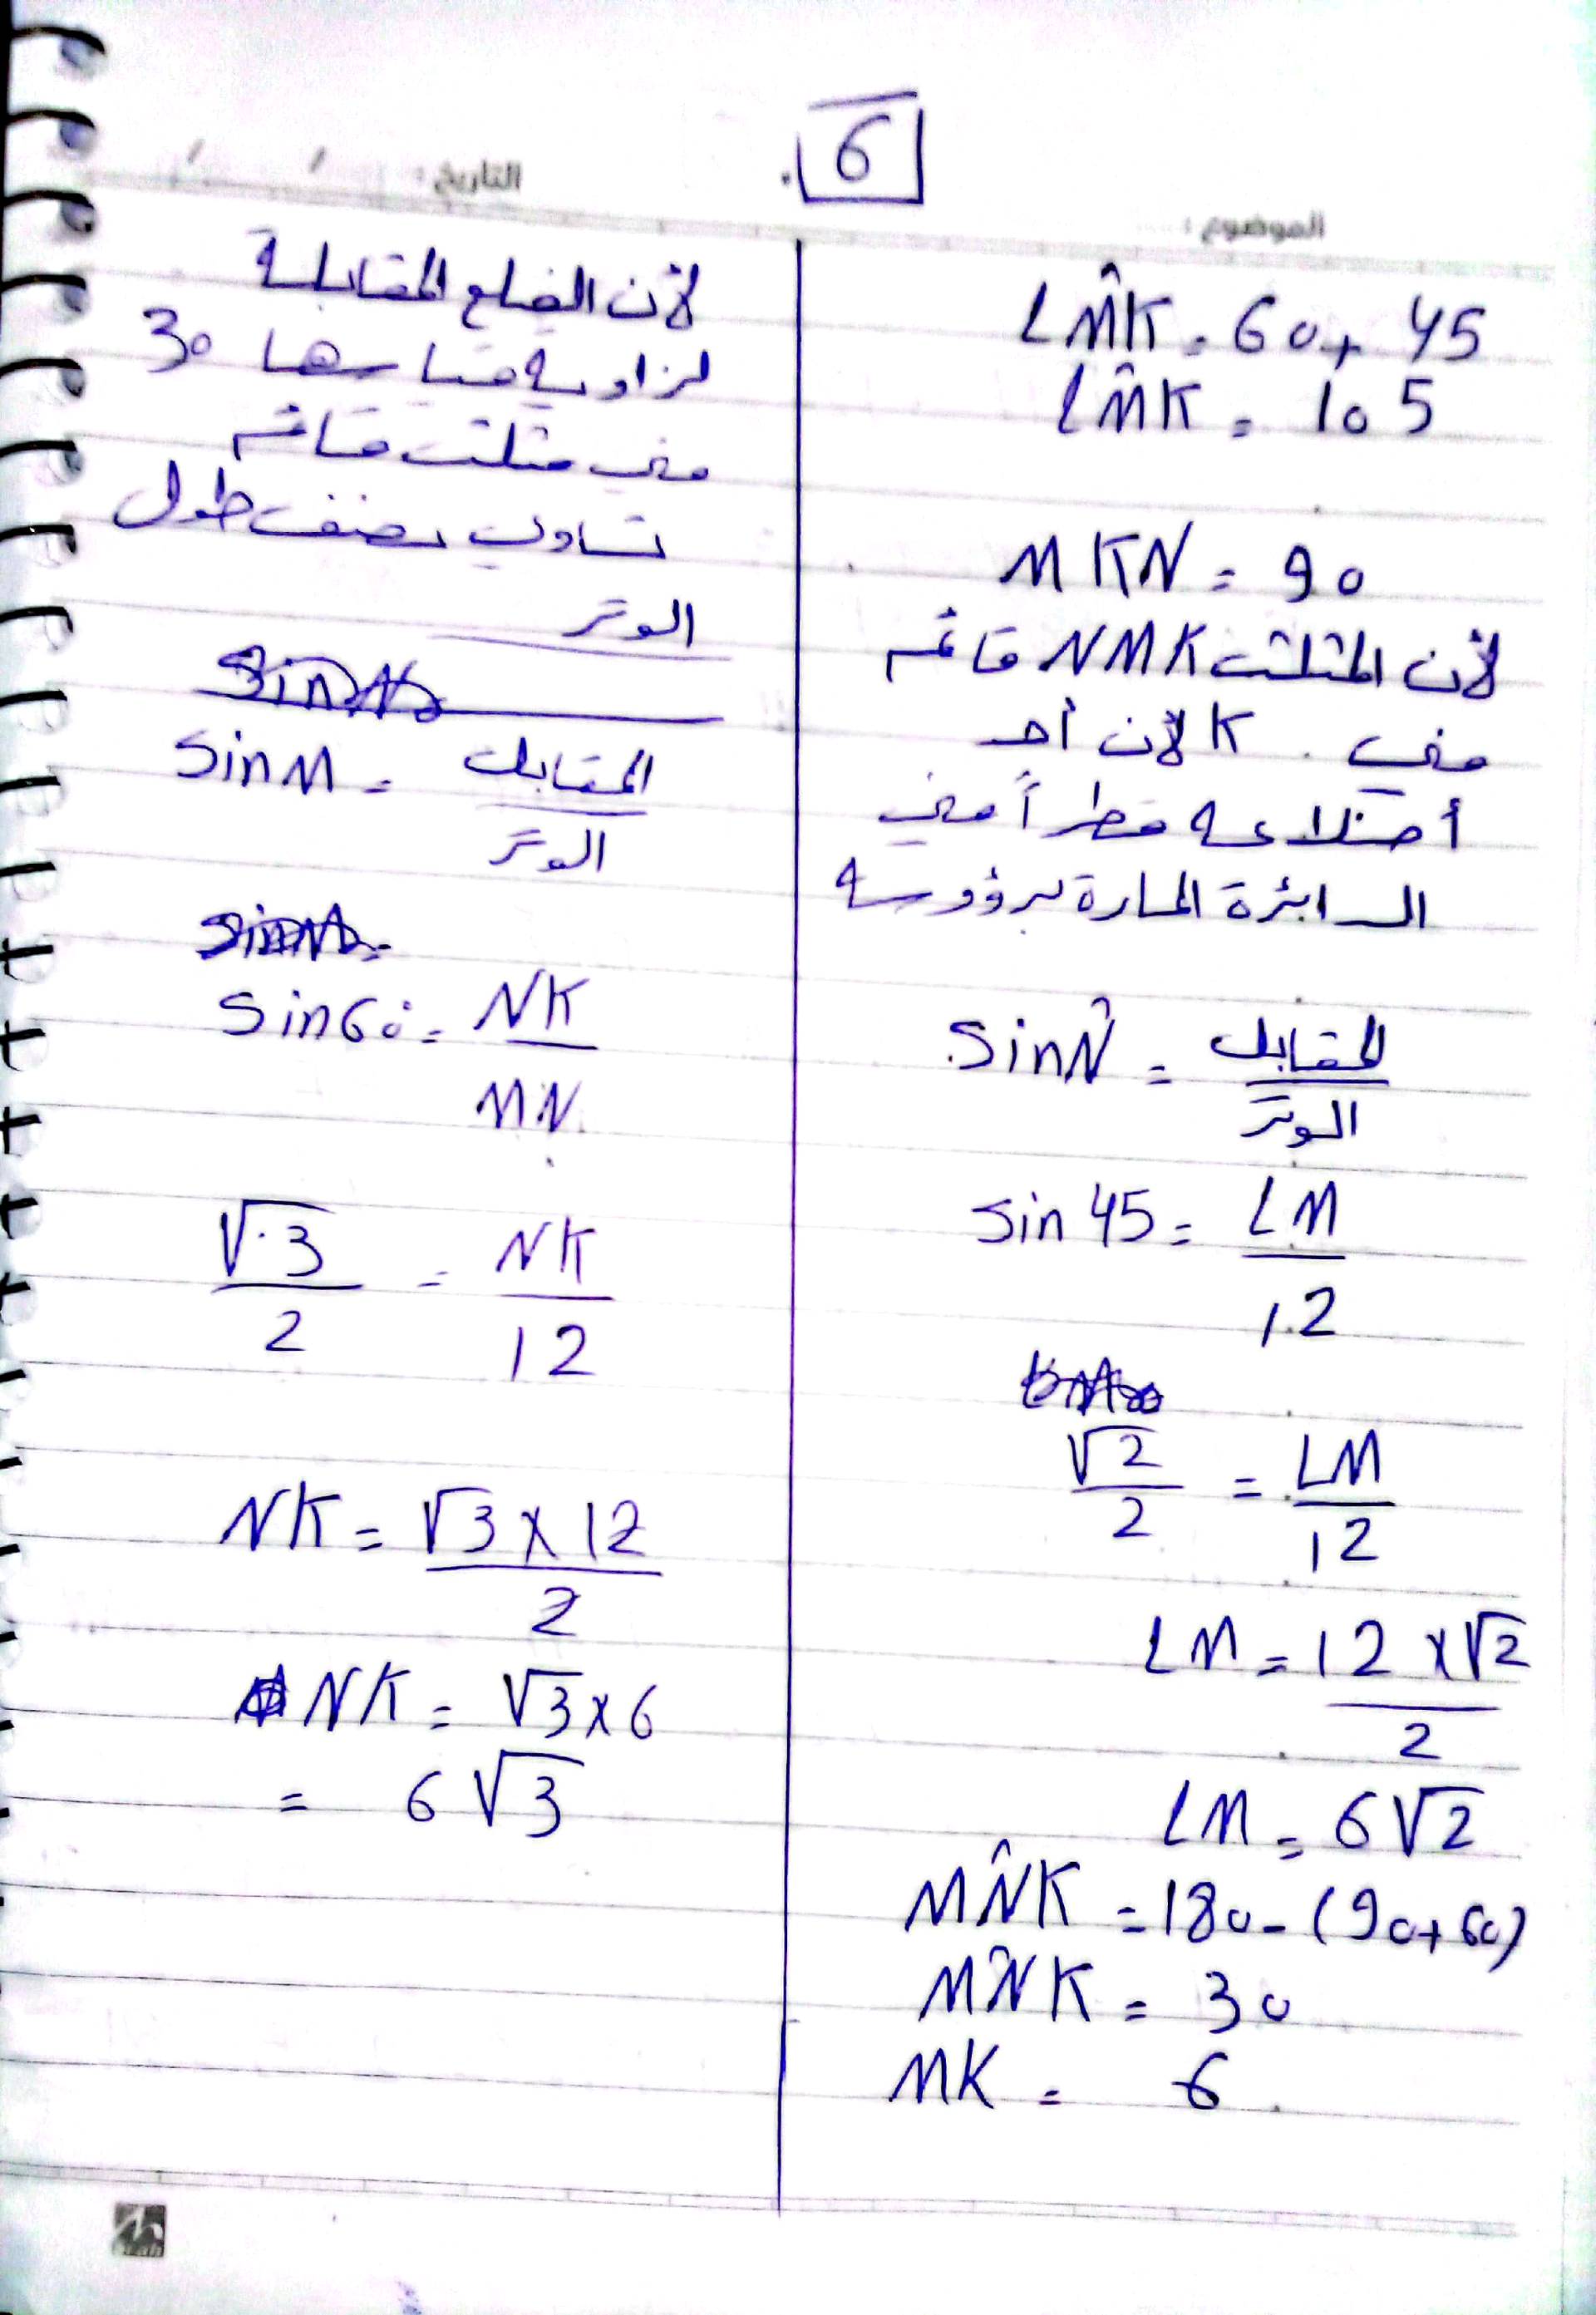 6
الموضوع :
التاريخ : / /
LM̂K = 60 + 45
LM̂K = 105
MKN = 90
لأن المثلث NMK قائم
في K لأن أحد
أضلاعه قطراً في
الدائرة المارة برؤوسه
sin N̂ = المقابل / الوتر
sin 45 = LM / 12
√2 / 2 = LM / 12
LM = 12 × √2 / 2
LM = 6√2
MN̂K = 180 - (90 + 60)
MN̂K = 30
MK = 6
لأن الضلع المقابلة
لزاوية قياسها 30
في مثلث قائم
تساوي نصف طول
الوتر
sin M = المقابل / الوتر
sin 60 = NK / MN
√3 / 2 = NK / 12
NK = √3 × 12 / 2
NK = √3 × 6
= 6√3